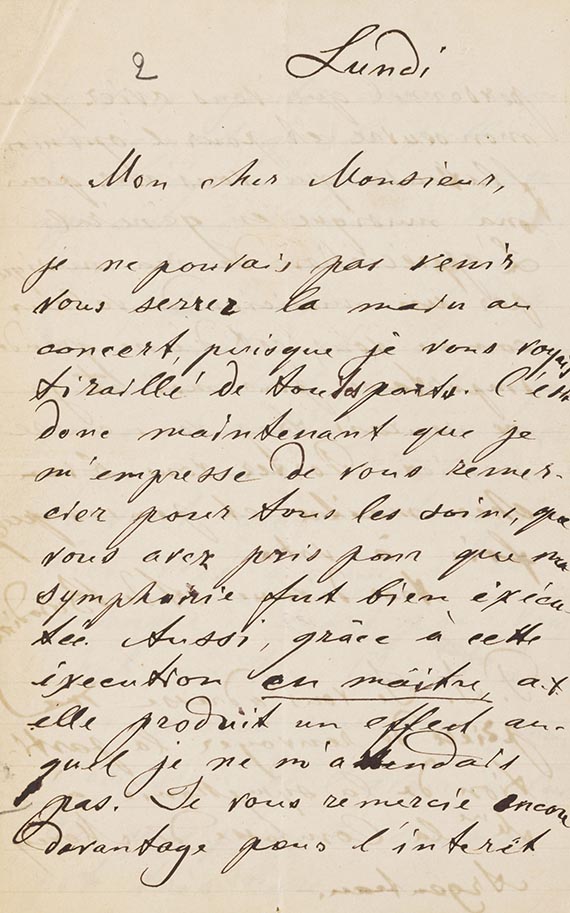 2
Lundi
Mon cher Monsieur,
je ne pouvais pas venir
vous serrer la main au
concert, puisque je vous voyais
tiraillé de touts parts. C'est
donc maintenant que je
m'empresse de vous remer-
cier pour tous les soins, que
vous avez pris pour que ma
symphonie fut bien éxécu-
tée. Aussi, grâce à cette
éxécution en maître, a-t
elle produit un effect au-
quel je ne m'attendais
pas. Je vous remercie encore
davantage pour l'interêt